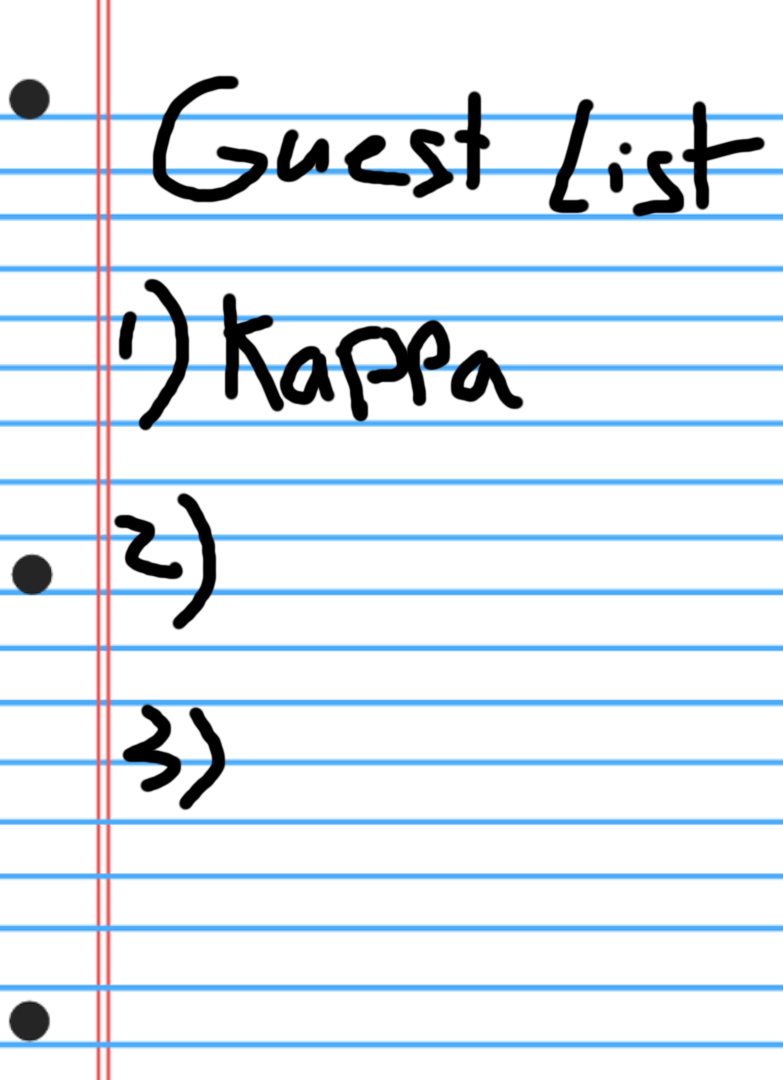 Guest List
1) Kappa
2)
3)